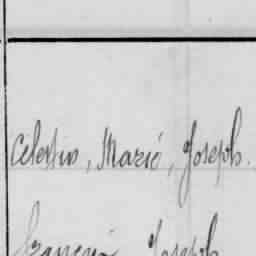 Celestin, Marié, Joseph.
François Joseph